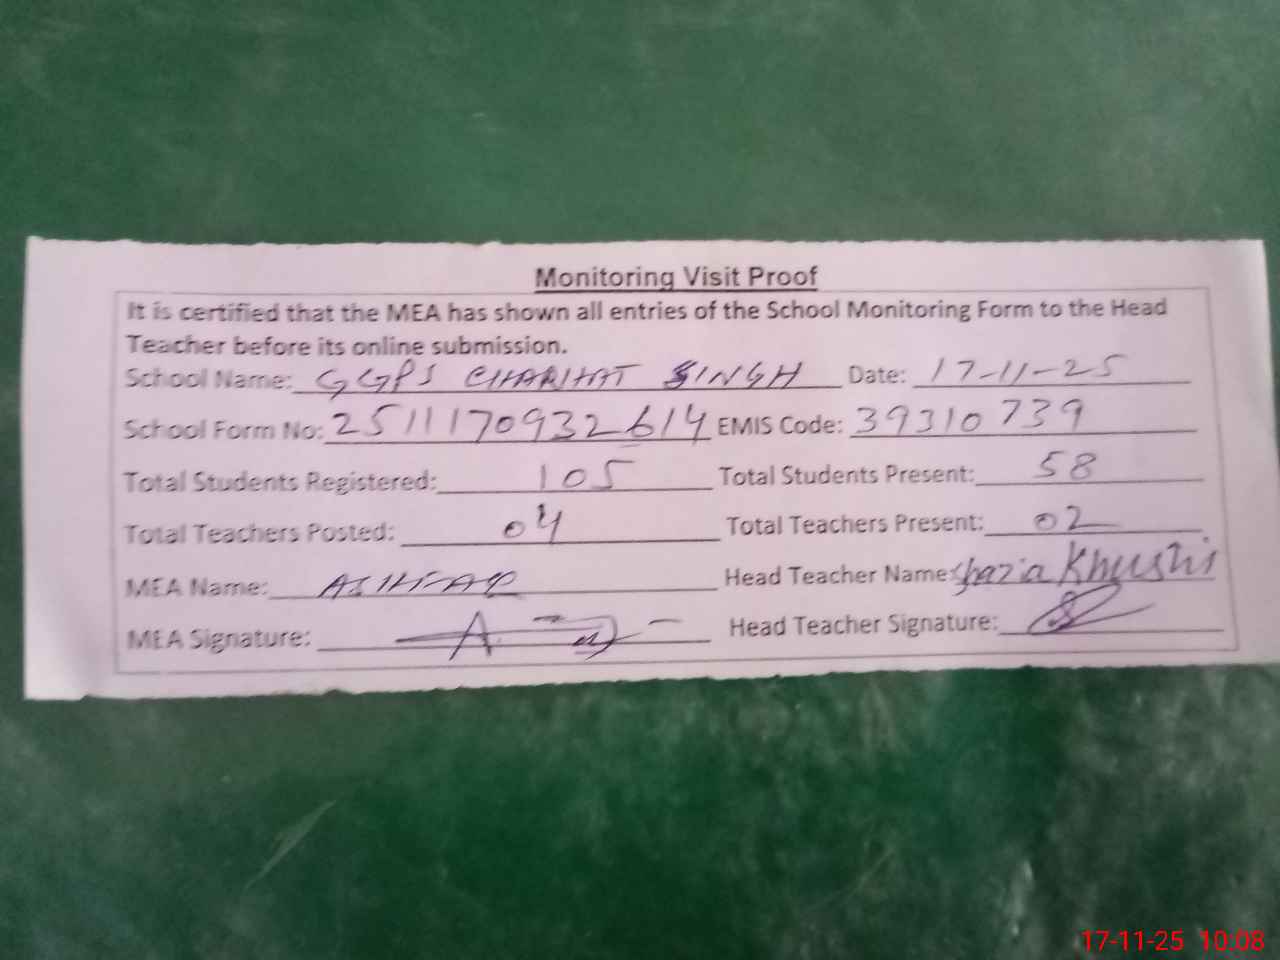 Monitoring Visit Proof
It is certified that the MEA has shown all entries of the School Monitoring Form to the Head
Teacher before its online submission.
School Name: GGPS CHARHAT SINGH Date: 17-11-25
School Form No: 2511170932614 EMIS Code: 39310739
Total Students Registered: 105 Total Students Present: 58
Total Teachers Posted: 04 Total Teachers Present: 02
MEA Name: ASHFAQ Head Teacher Name: Shazia Khushi
MEA Signature: Head Teacher Signature:
17-11-25 10:08